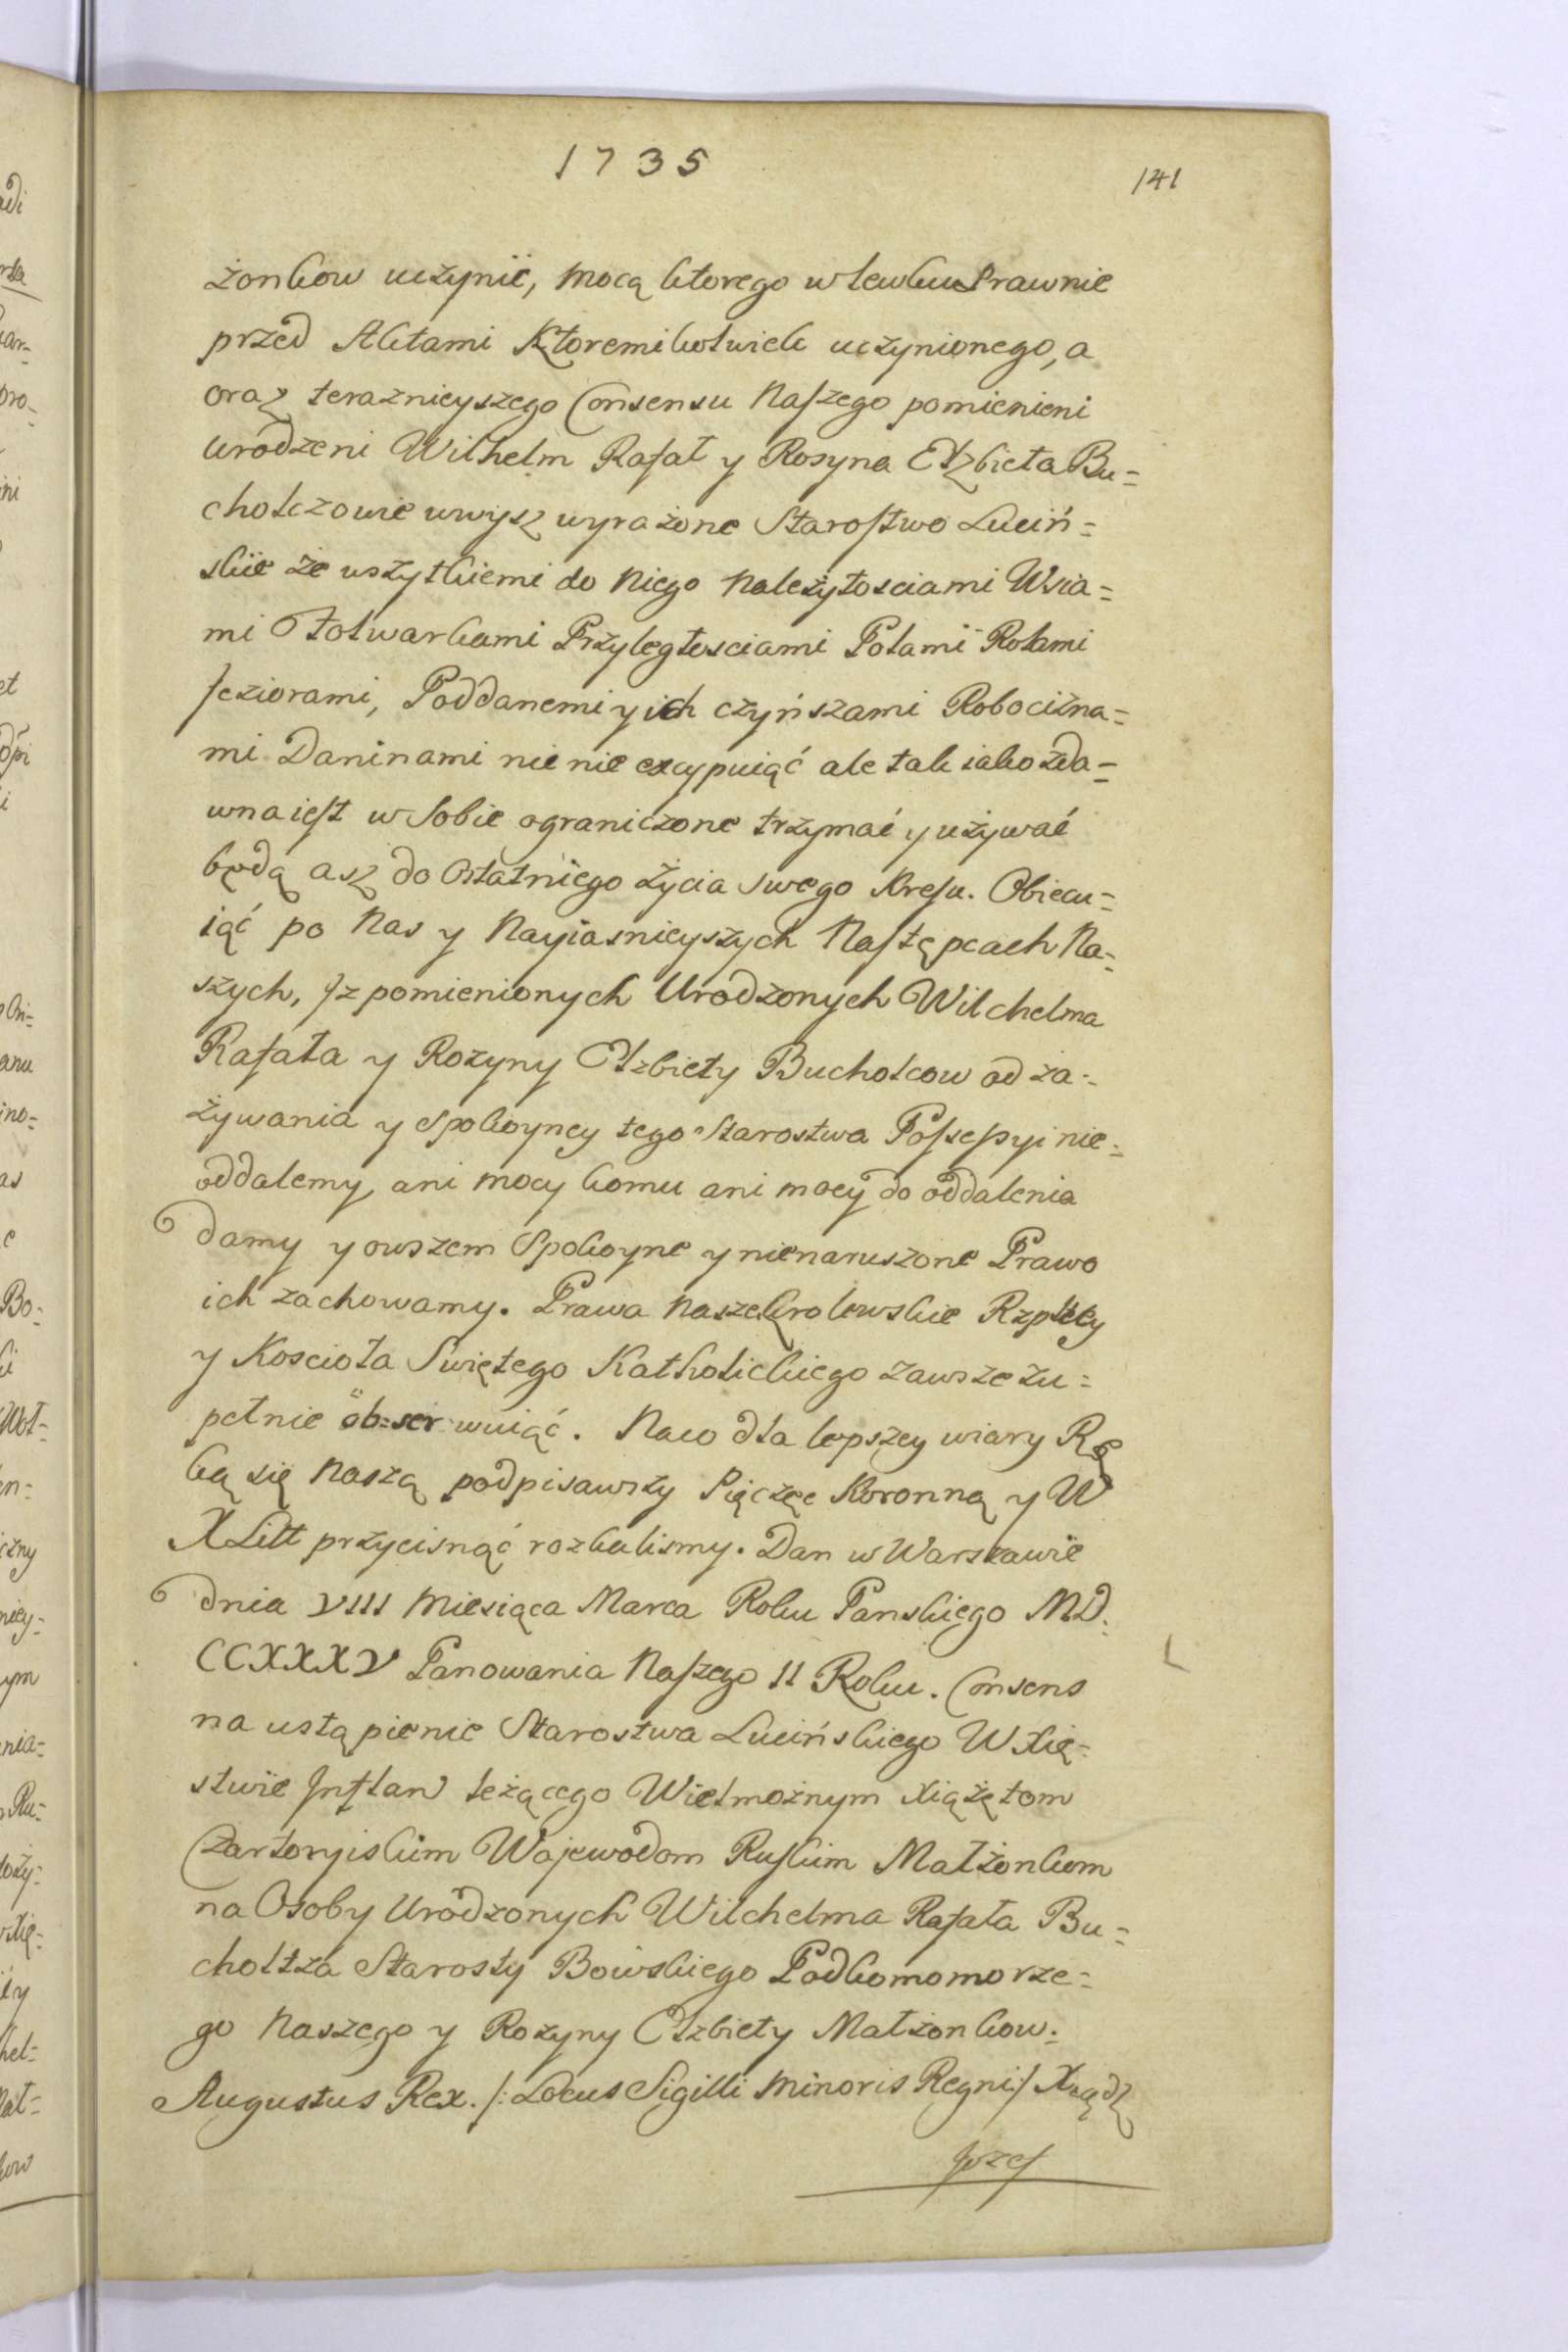 1735
141
żonkow uczynić, mocą ktorego wlewku Prawnie
przed Aktami Ktoremikolwiek uczynionego, a
oraz teraznieyszego Consensu Naszego pomienieni
Urodzeni Wilhelm Rafał y Rosyna Elżbieta Bu=
cholczowie wwysz wyrażone Starostwo Luciń=
skie że wszytkiemi do Niego Należytosciami Wsia=
mi Folwarkami Przyległosciami Polami Rolami
Jeziorami, Poddanemi y ich czyńszami Robocizna=
mi Daninami nie nie excypuiąć ale tak iako zda=
wna iest w Sobie ograniczone trzymać y używać
będą asz do Ostatniego życia swego Kresu. Obiecu=
iąć po Nas y Nayiasnieyszych Następcach Na=
szych, Jz pomienionych Urodzonych Wilchelma
Rafała y Rozyny Elzbiety Bucholcow od za=
żywania y Spokoyney tego Starostwa Possessyi nie=
oddalemy, ani mocy komu ani mocy do oddalenia
damy y owszem Spokoyne y nienaruszone Prawo
ich zachowamy. Prawa Nasze Krolewskie Rzpltey
y Kosciola Swiętego Katholickiego zawsze zu=
pełnie ob=ser wuiąć. Naco dla lepszey wiary Rę
ką się Naszą podpisawszy Pięczęc Koronną y W
X Litt przycisnąć rozkalismy. Dan w Warszawie
dnia VIII Miesiąca Marca Roku Panskiego MD.
CCXXXV Panowania Naszego II Roku. Consens
na ustąpienie Starostwa Lucińskiego W Xię=
stwie Jnflan leżącego Wielmożnym Xiążętom
Czartoryiskim Wojewodom Ruskim Małżonkom
na Osoby Urodzonych Wilchelma Rafała Bu=
choltza Starosty Bowskiego Podkomomorze=
go Naszego y Rozyny Elzbiety Małżonkow.
Augustus Rex. /: Locus Sigilli Minoris Regni/ Xsądz
Jozef